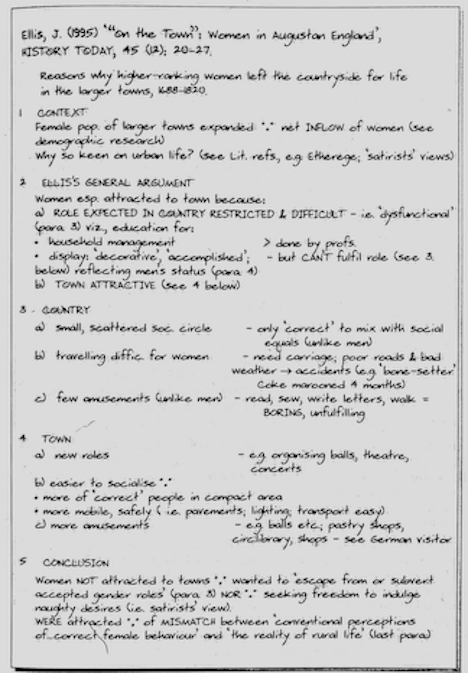 Ellis, J. (1995) '"On the Town": Women in Augustan England',
HISTORY TODAY, 45 (12): 20-27.
Reasons why higher-ranking women left the countryside for life
in the larger towns, 1688-1820.
1 CONTEXT
Female pop. of larger towns expanded ∵ net INFLOW of women (see
demographic research)
Why so keen on urban life? (see Lit. refs, e.g. Etherege; 'satirists' views)
2 ELLIS'S GENERAL ARGUMENT
Women esp. attracted to town because:
a) ROLE EXPECTED IN COUNTRY RESTRICTED & DIFFICULT - i.e. 'dysfunctional'
(para 3) viz., education for:
• household management > done by profs.
• display: 'decorative', 'accomplished'; - but CAN'T fulfil role (see 3.
below) reflecting men's status (para 4)
b) TOWN ATTRACTIVE (see 4 below)
3 COUNTRY
a) small, scattered soc. circle - only 'correct' to mix with social
equals (unlike men)
b) travelling diffic. for women - need carriage; poor roads & bad
weather → accidents (e.g. 'bone-setter'
Coke marooned 4 months)
c) few amusements (unlike men) - read, sew, write letters, walk =
BORING, unfulfilling
4 TOWN
a) new roles - e.g. organising balls, theatre,
concerts
b) easier to socialise ∵
• more of 'correct' people in compact area
• more mobile, safely (i.e. pavements; lighting; transport easy)
c) more amusements - e.g. balls etc; pastry shops,
circ.library, shops - see German visitor
5 CONCLUSION
Women NOT attracted to towns ∵ wanted to 'escape from or subvert
accepted gender roles' (para 3) NOR ∵ seeking freedom to indulge
naughty desires (i.e. satirists' view).
WERE attracted ∵ of MISMATCH between 'conventional perceptions
of correct female behaviour' and 'the reality of rural life' (last para)